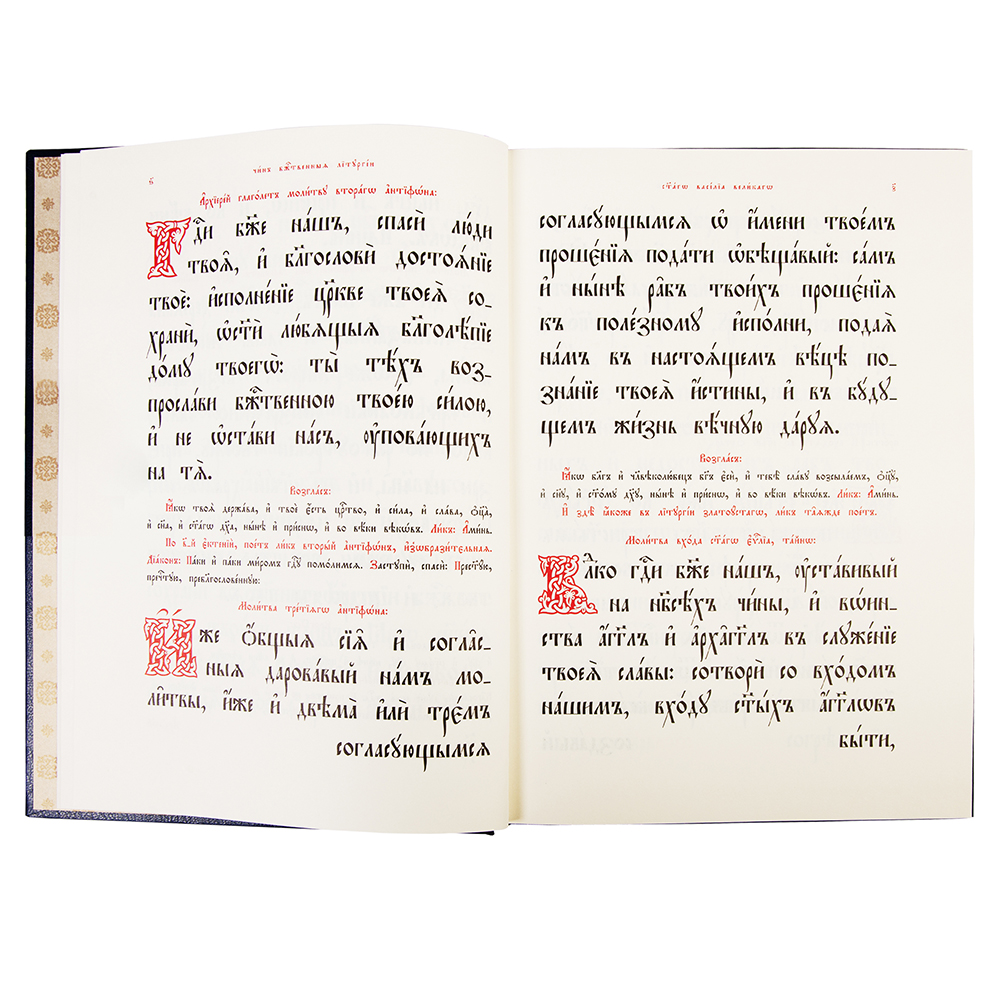 ѕ҃
чи́нъ бж҃твенныѧ літꙋргі́и
А҆рхїере́й глаго́летъ моли́твꙋ втора́гѡ а҆нтїфѡ́на:
Гдⷭ҇и бж҃е на́шъ, спасѝ лю́ди
твоѧ̑, и҆ бл҃гословѝ достоѧ́нїе
твоѐ: и҆сполне́нїе цр҃кве твоеѧ̀ со-
хранѝ, ѡ҆ст҃ѝ лю́бѧщыѧ бл҃голѣ́пїе
до́мꙋ твоегѡ̀: ты̀ тѣ́хъ воз-
просла́ви бжⷭ҇твенною твое́ю си́лою,
и҆ не ѡ҆ста́ви на́съ, ᲂу҆пова́ющихъ
на тѧ̀.
Возгла́съ:
Ꙗ҆́кѡ твоѧ̀ держа́ва, и҆ твоѐ є҆́сть црⷭ҇тво, и҆ си́ла, и҆ сла́ва, ѻ҆ц҃а̀,
и҆ сн҃а, и҆ ст҃а́гѡ дх҃а, ны́нѣ и҆ при́снѡ, и҆ во вѣ́ки вѣкѡ́въ. Ли́къ: А҆ми́нь.
По в҃-й є҆ктенїѝ, пое́тъ ли́къ вторы́й а҆нтїфѡ́нъ, и҆з̾ѡбрази́тєльнаѧ.
Дїа́конъ: Па́ки и҆ па́ки ми́ромъ гдⷭ҇ꙋ помо́лимсѧ. Застꙋпѝ, спасѝ: Прест҃ꙋ́ю,
пречⷭ҇тꙋю, преблагослове́ннꙋю:
Моли́тва тре́тїѧгѡ а҆нтїфѡ́на:
И҆́же ѻ҆́бщыѧ сїѧ̑ и҆ согла́с-
ныѧ дарова́вый на́мъ мо-
ли̑твы, и҆́же и҆ двѣма̀ и҆лѝ трє́мъ
согласꙋ́ющымсѧ
ст҃а́гѡ васі́лїа вели́кагѡ
з҃
согласꙋ́ющымсѧ ѡ҆ и҆́мени твое́мъ
прошє́нїѧ пода́ти ѡ҆бѣща́вый: са́мъ
и҆ ны́нѣ ра̑бъ твои́хъ прошє́нїѧ
къ поле́зномꙋ и҆спо́лни, подаѧ̀
на́мъ въ настоѧ́щемъ вѣ́цѣ по-
зна́нїе твоеѧ̀ и҆́стины, и҆ въ бꙋ́дꙋ-
щемъ жи́знь вѣ́чнꙋю да́рꙋѧ.
Возгла́съ:
Ꙗ҆́кѡ бл҃гъ и҆ чл҃вѣколю́бецъ бг҃ъ є҆сѝ, и҆ тебѣ̀ сла́вꙋ возсыла́емъ, ѻ҆ц҃ꙋ̀,
и҆ сн҃ꙋ, и҆ ст҃о́мꙋ дх҃ꙋ, ны́нѣ и҆ при́снѡ, и҆ во вѣ́ки вѣкѡ́въ. Ли́къ: А҆ми́нь.
И҆ здѣ̀ ꙗ҆́коже въ літꙋргі́и златоꙋ́стагѡ, ли́къ та̑ѧжде пое́тъ.
Моли́тва вхо́да ст҃а́гѡ є҆ѵⷢ҇лїа, та́йнѡ:
Влⷣко гдⷭ҇и бж҃е на́шъ, ᲂу҆ста́вивый
на нб҃сѣ́хъ чи́ны, и҆ во́ин-
ства а҆́гг҃лъ и҆ а҆рха́гг҃лъ въ слꙋже́нїе
твоеѧ̀ сла́вы: сотворѝ со вхо́домъ
на́шимъ, вхо́дꙋ ст҃ы́хъ а҆́гг҃лѡвъ
бы́ти,